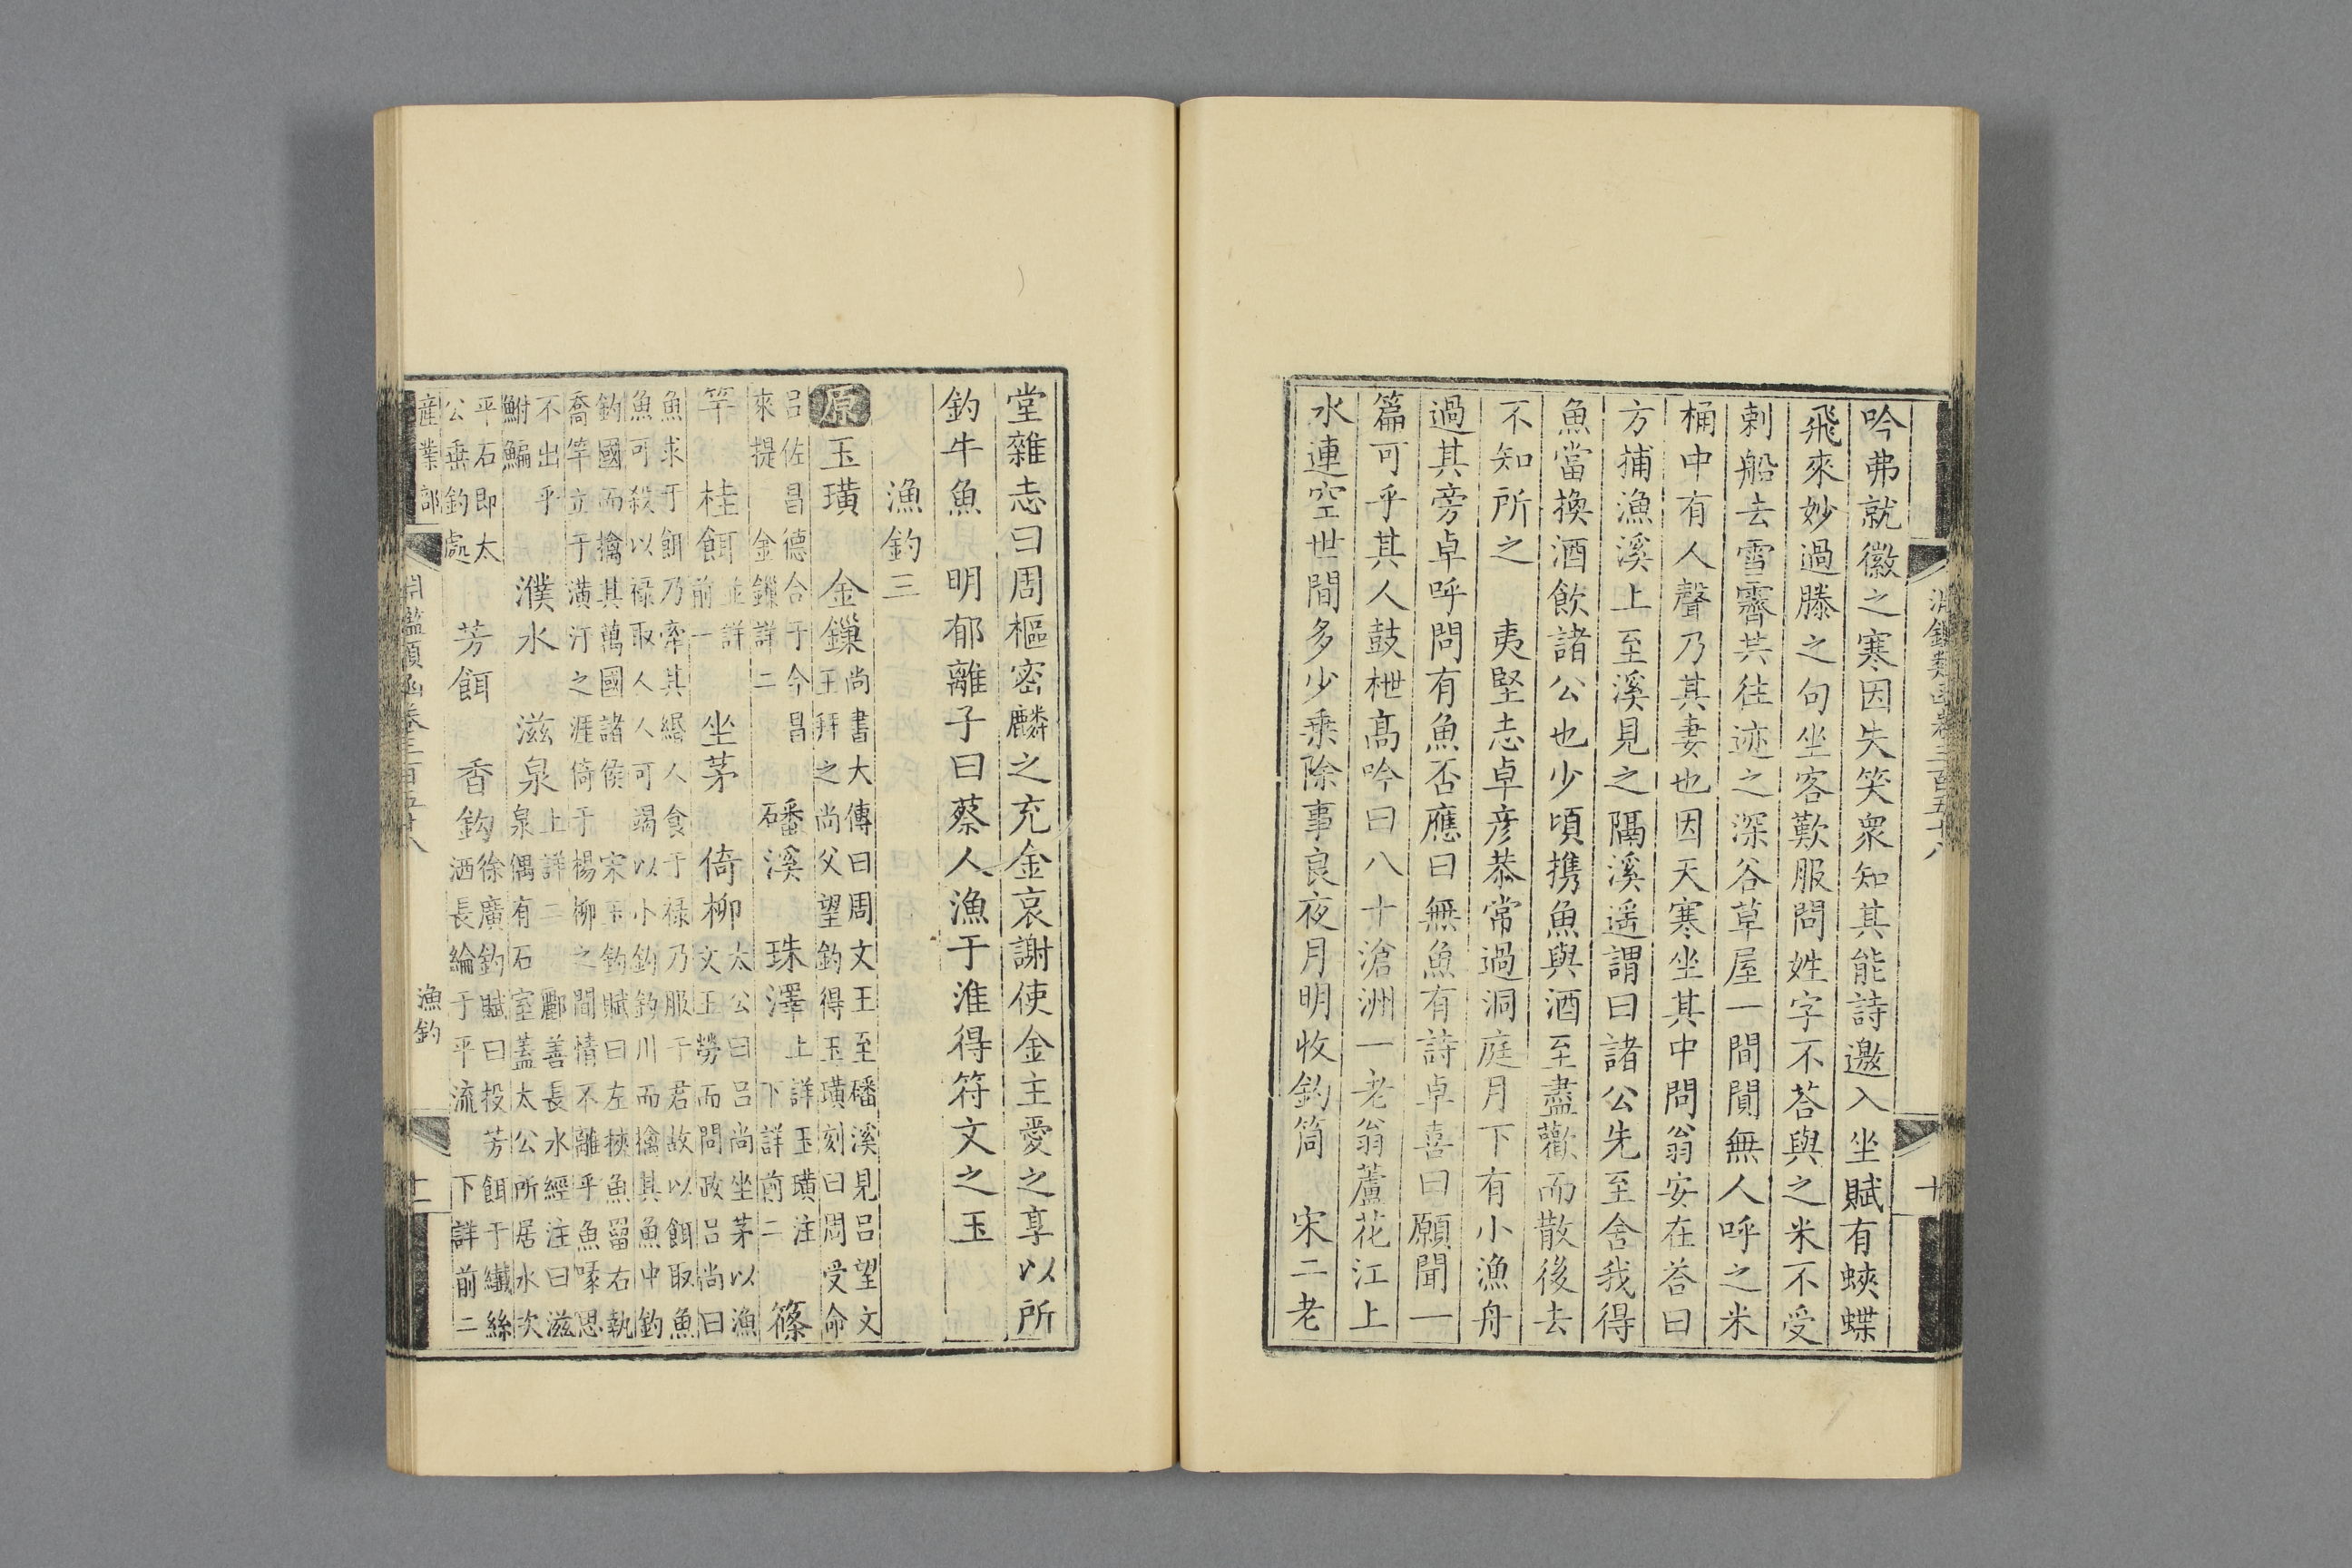 吟弗就徽之寒因失笑衆知其能詩邀入坐賦有蛺蝶
飛來妙過滕之句坐客歎服問姓字不荅與之米不受
刺船去雪霽其往迹之深谷草屋一間闃無人呼之米
桶中有人聲乃其妻也因天寒坐其中問翁安在荅曰
方捕漁溪上至溪見之隔溪遥謂曰諸公先至舍我得
魚當換酒飲諸公也少頃携魚與酒至盡歡而散後去
不知所之 夷堅志卓彦恭常過洞庭月下有小漁舟
過其旁卓呼問有魚否應曰無魚有詩卓喜曰願聞一
篇可乎其人鼓枻高吟曰八十滄洲一老翁蘆花江上
水連空世間多少乗除事良夜月明收釣筒 宋二老
堂雜志曰周樞密麟之充金哀謝使金主愛之享以所
釣牛魚 明郁離子曰蔡人漁于淮得符文之玉
漁釣三
原 玉璜 金鏁尚書大傳曰周文王至磻溪見吕望文
王拜之尚父望釣得玉璜刻曰周受命
吕佐昌德合于今昌
來提 金鏁詳二 磻溪 珠澤上詳玉璜注
下詳前二 篠
竿 桂餌並詳
前一 坐茅 倚柳太公曰吕尚坐茅以漁
文王勞而問政吕尚曰
魚求于餌乃牽其緡人食于禄乃服于君故以餌取魚
魚可殺以禄取人人可竭以小釣釣川而擒其魚中釣
釣國而擒其萬國諸侯 宋玉釣賦曰左挾魚罶右執
喬竿立于潢汙之涯倚于楊柳之間情不離乎魚喙思
不出乎
鮒鯿 濮水 滋泉上詳二 酈善長水經注曰滋
泉偶有石室蓋太公所居水次
平石即太
公垂釣處 芳餌 香鈎徐廣釣賦曰投芳餌于纎絲
洒長綸于平流下詳前二
産業部
淵鑑類函卷三百五十八
漁釣